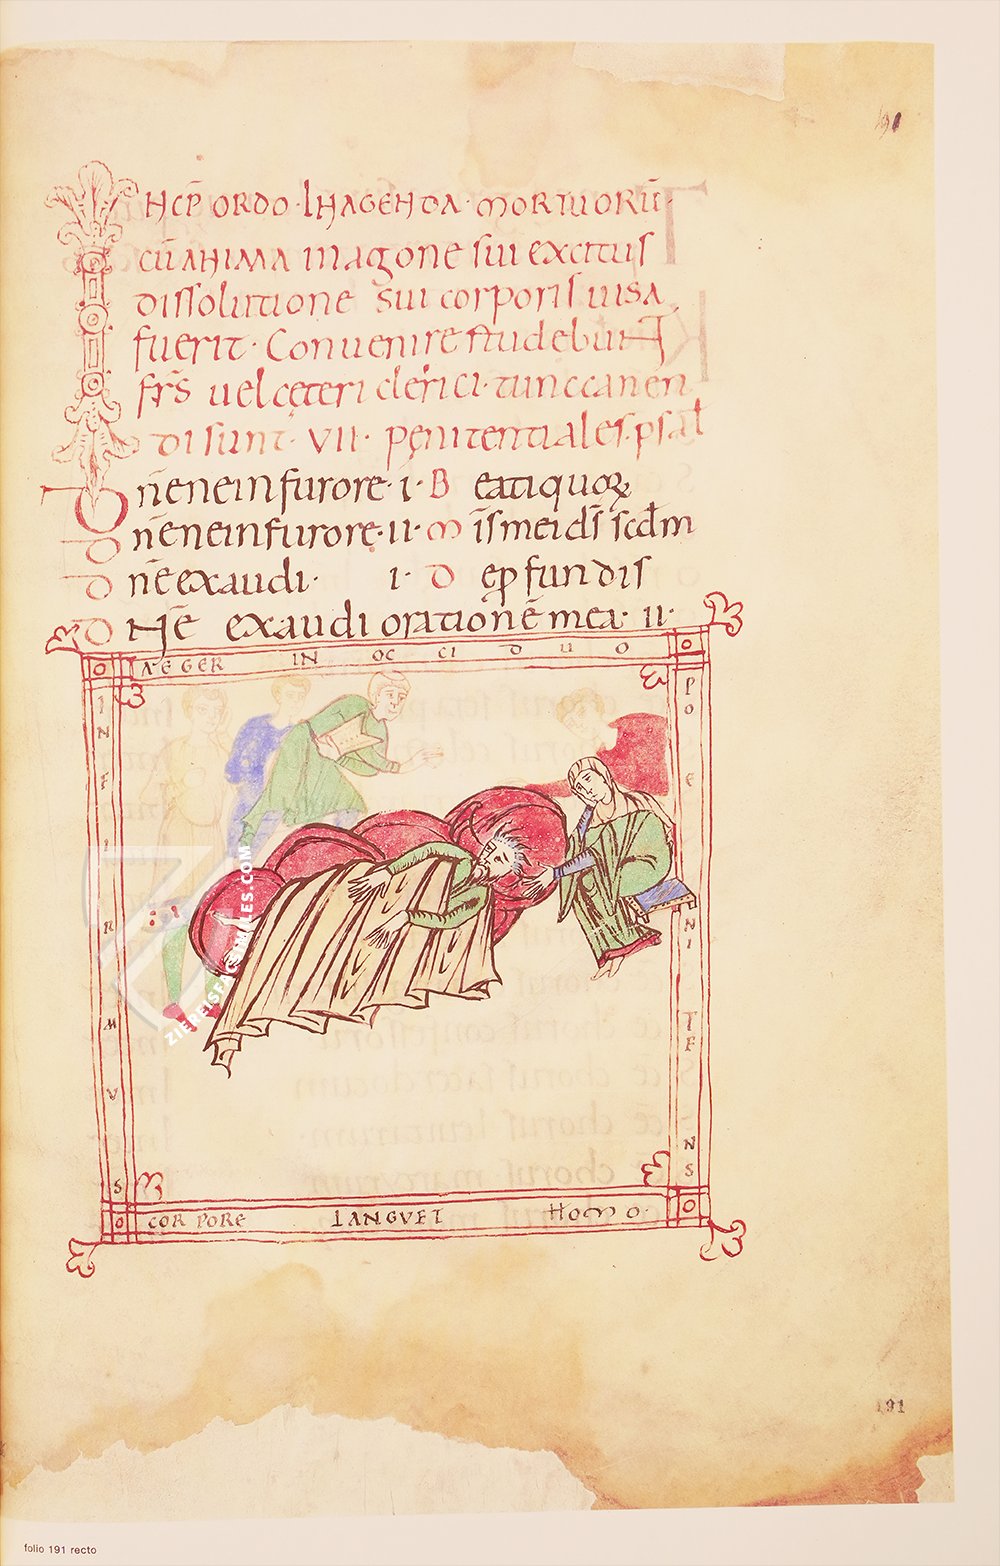 191
INCP̄ ORDO· IN AGENDA· MORTUORŪ·
CŪ ANIMA IN agone sui exitus
dissolutione sui corporis uisa
fuerit· Conuenire studebunt
fr̄s uel cęteri clerici· tunc canen
di sunt· VII· pęnitentiales· psal
Dn̄e ne in furore· i· Beati quorꝝ
Dn̄e ne in furore· ii· M īs mei d̄s scd̄m
Dn̄e exaudi· i· De ꝓfundis
DNĒ exaudi orationē mea· ii·
AEGER IN OCCIDUO
INFIRMUS
PONE PONITENS
CORPORE LANGUET HOMO·
ZIEREISFACSIMILES.COM
191
folio 191 recto